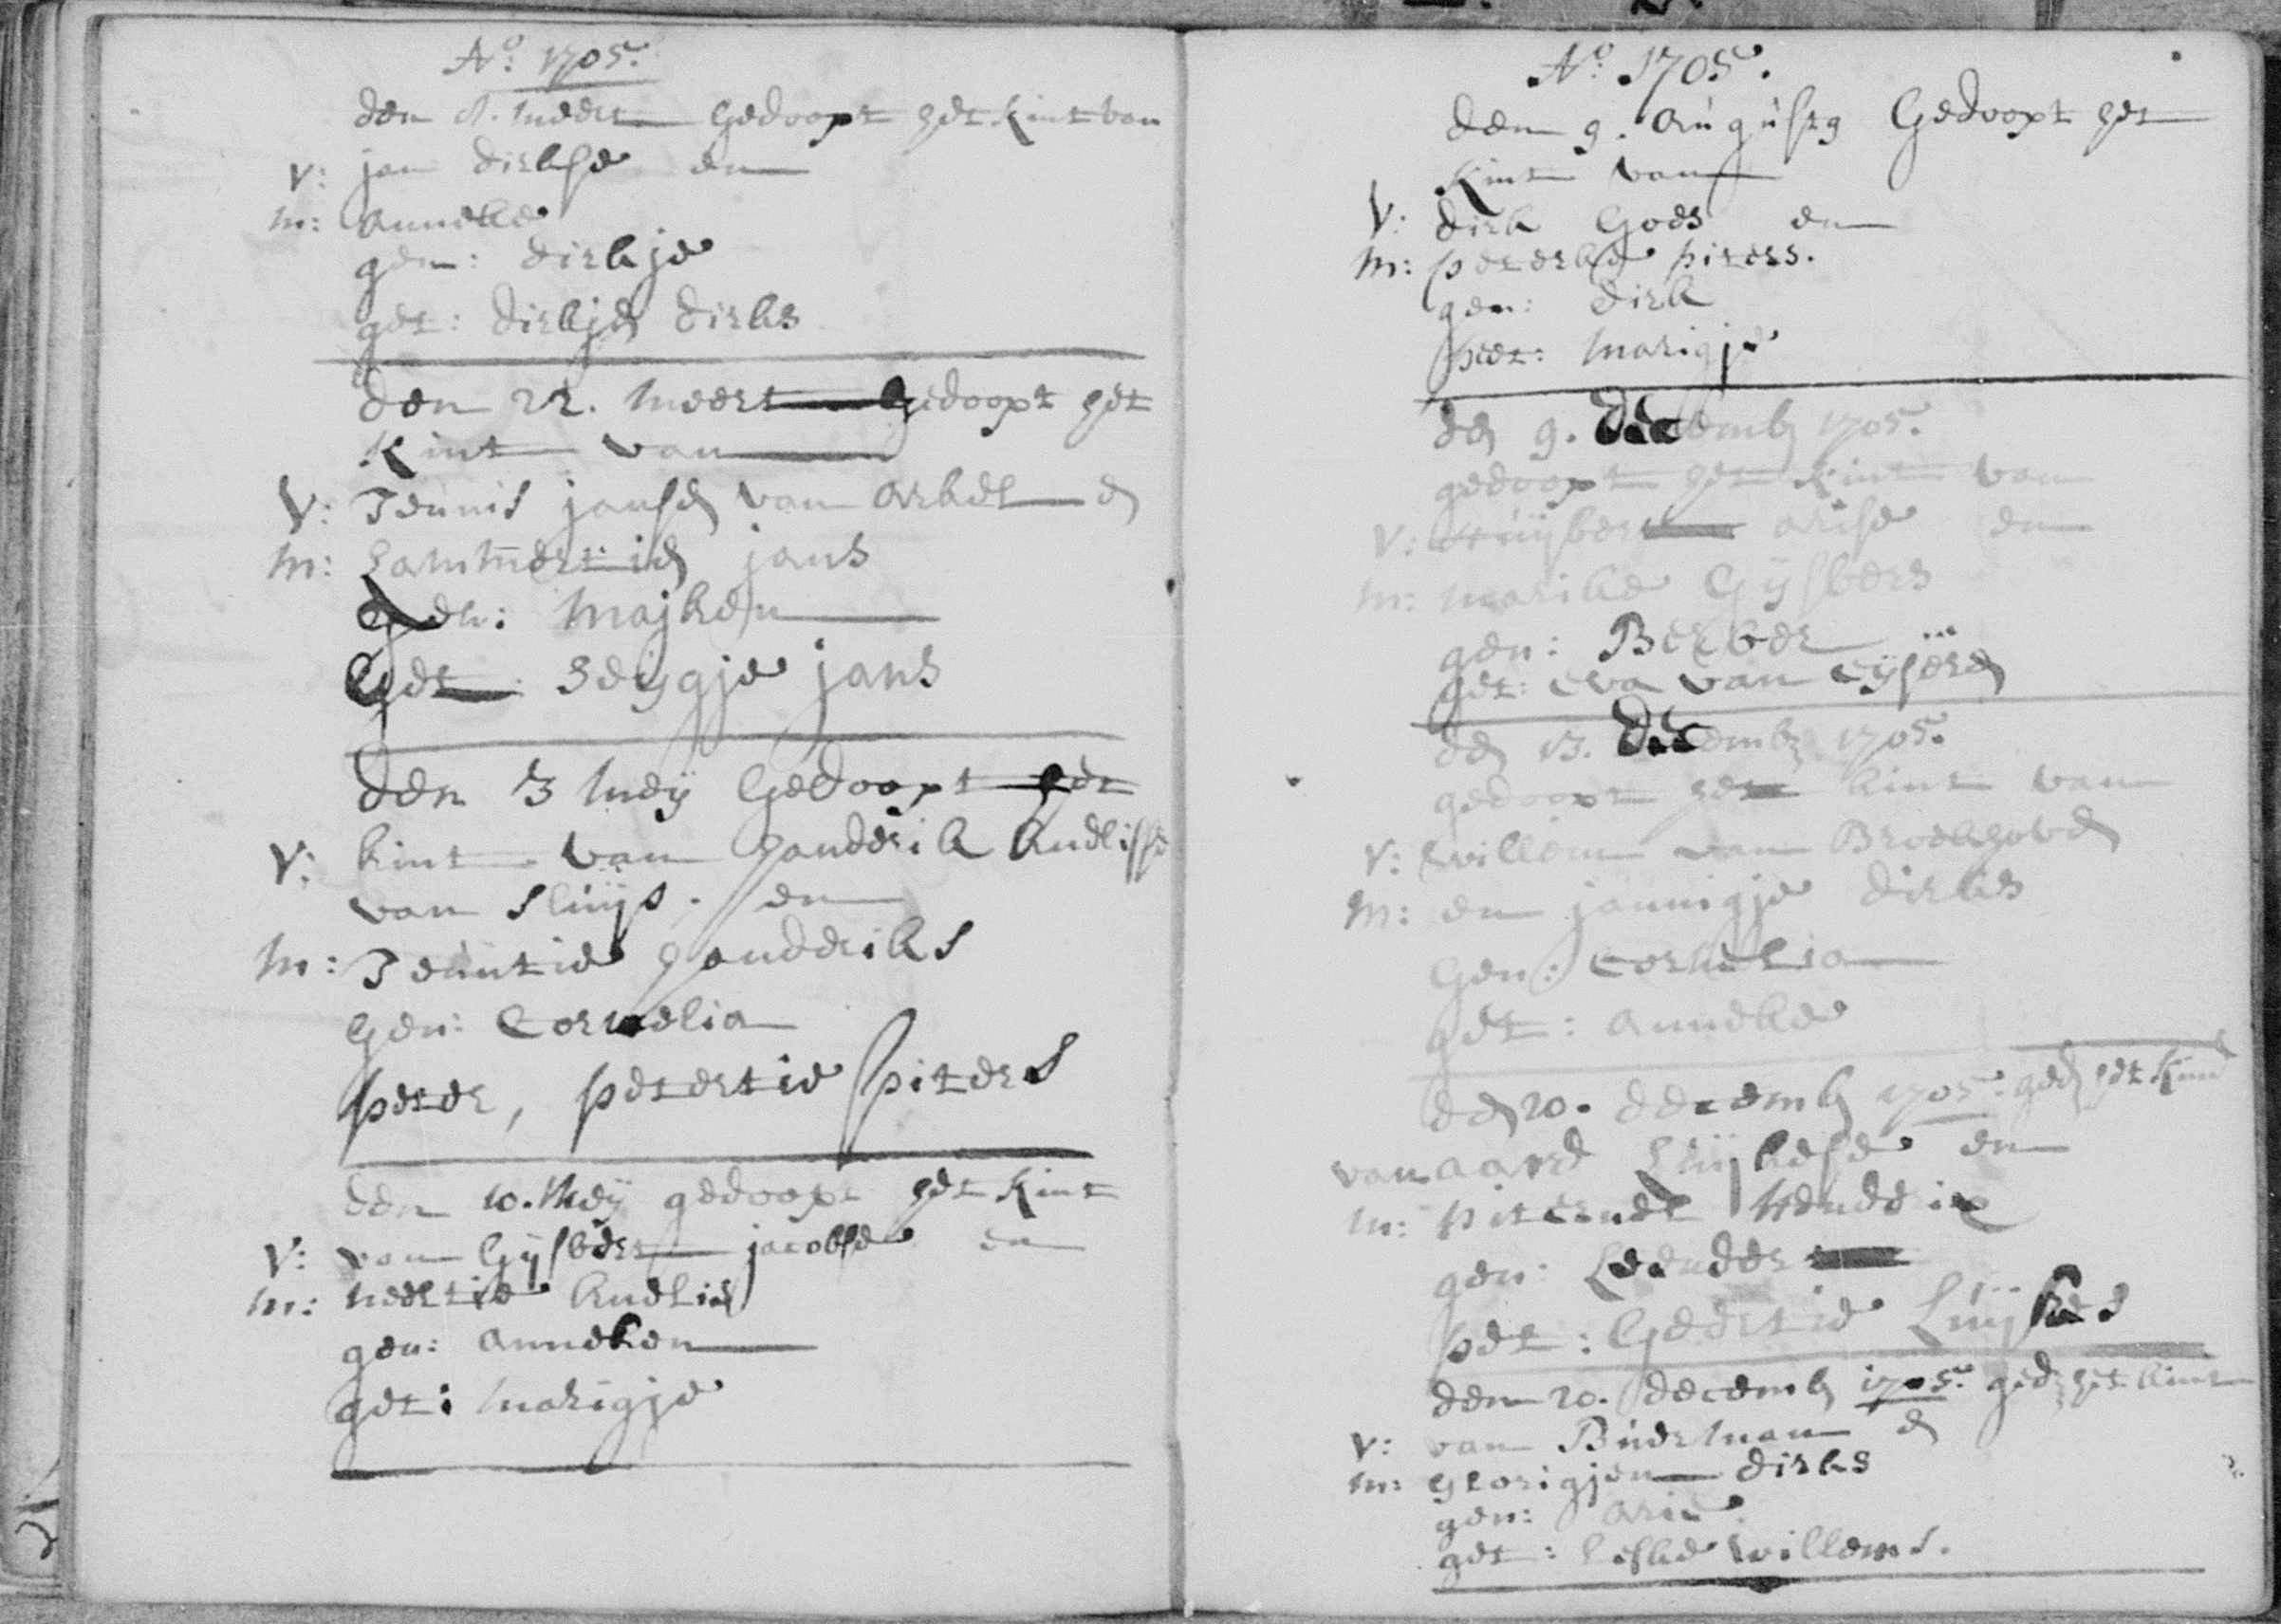 Ao: 1705.
den 1. meert Gedoopt het Kint van
V: jan dirkse en
m: Anneke
gen: dirkje
get: dirkje dirks
den 22. meert Gedoopt het
Kint van
V: Teunis janse van Arkel en
m: Lammertie jans
gen: Majken
Get: jans
den 3 meij Gedoopt het
V: kint van handerik
van Sluijs. en
m: Teuntie handeriks
Gen: Cornelia
peter, petertie piters
den 10. Meij gedoopt het Kint
V: van Gijsbert jacobse en
m: neeltie
gen: anneken
get: marigje
Ao 1705.
den 9. Augusty Gedoopt het
Kint van
V: dirk Goes en
m: peterke piters.
gen: dirk
pet: marigje
den 9. decemb 1705.
gedoopt het Kint van
V: Huijbert arise en
m: marike Gijsbers
gen: Berber
get: eva van
den 13. decemb 1705.
gedoopt het kint van
V: willem van Broekhove
M: en jannigje dirks
Gen: Cornelia
get: anneke
den 20. decemb 1705. ged het Kint
van aard en
m: Hendrix
gen: Leender
pet: Geertie Luijkes
den 20. decemb 1705. ged het kint
V: van Buerman en
m: dirks
gen: arie
get: willems.